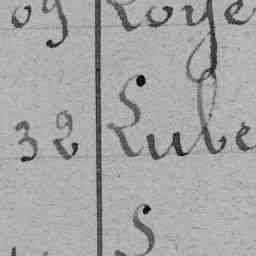 09 Loye
32 Lube
S